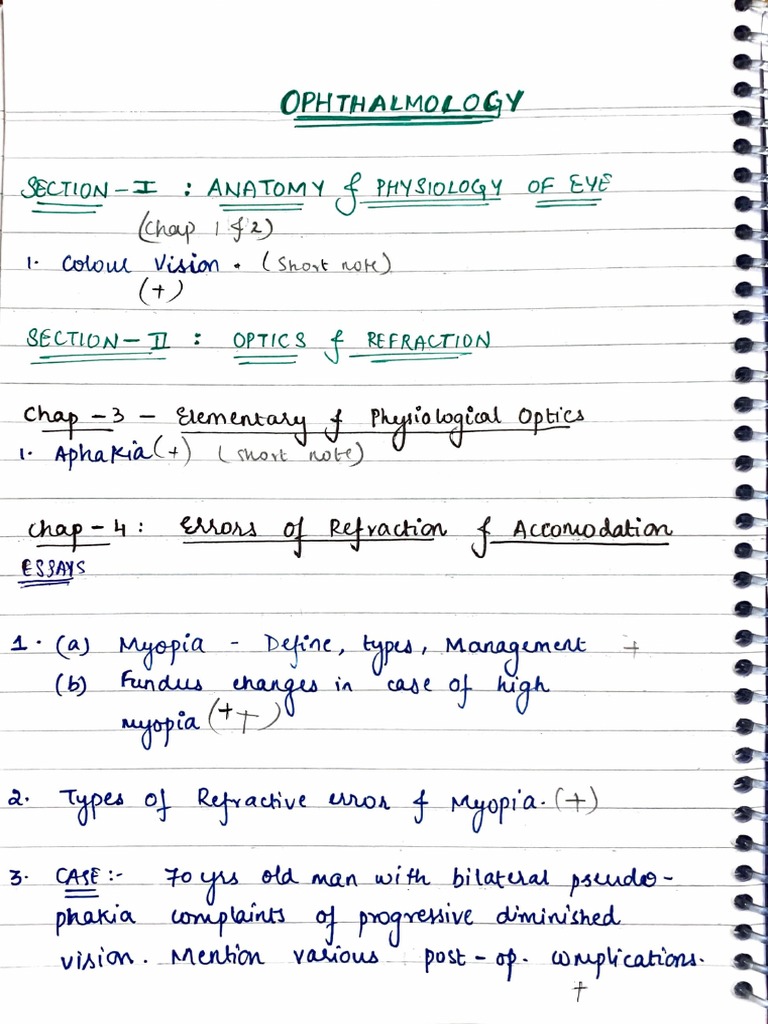 OPHTHALMOLOGY
SECTION-I : ANATOMY & PHYSIOLOGY OF EYE
(Chap 1 & 2)
1. Colour Vision. (Short note)
(+)
SECTION-II : OPTICS & REFRACTION
Chap-3 - Elementary & Physiological Optics
1. Aphakia (+) (short note)
Chap-4: Errors of Refraction & Accomodation
ESSAYS
1. (a) Myopia - Define, types, Management +
(b) Fundus changes in case of high
myopia (++)
2. Types of Refractive error & Myopia. (+)
3. CASE:- 70 yrs old man with bilateral pseudo-
phakia complaints of progressive diminished
vision. Mention various post-op. complications.
+